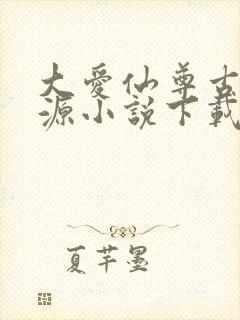 大愛仙尊古
源小説下載
夏芊墨